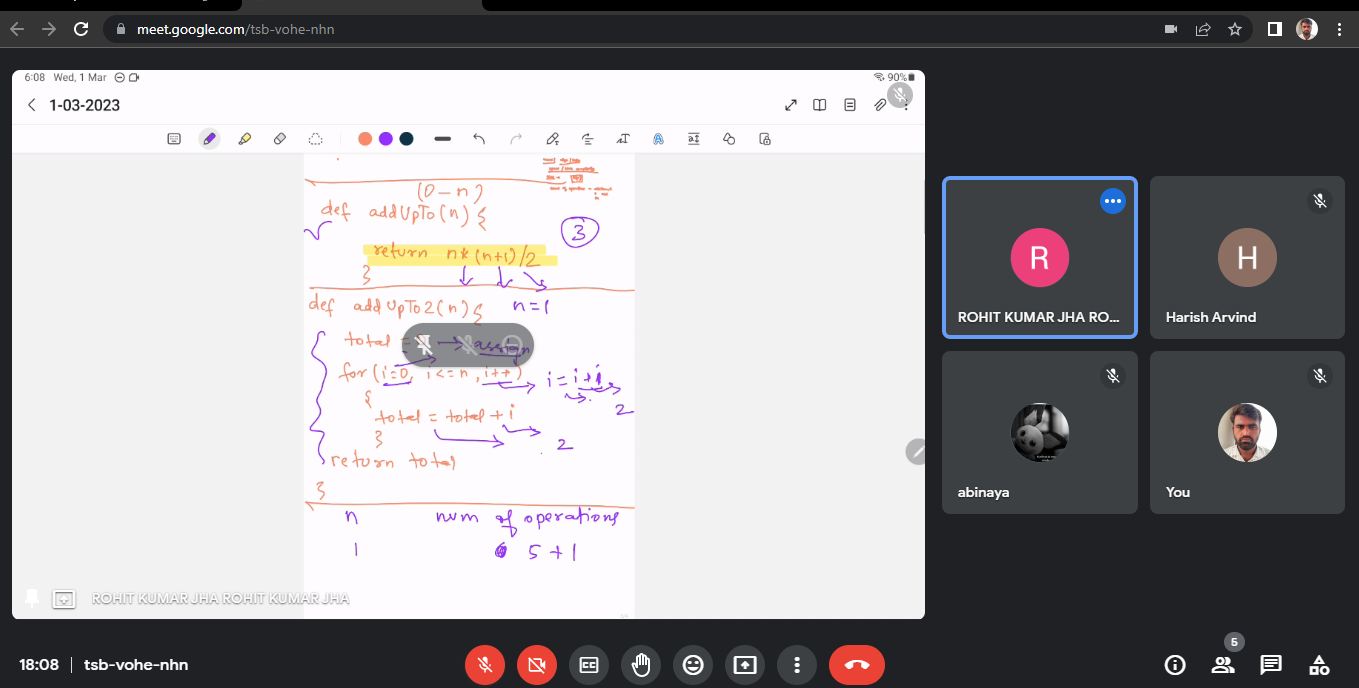 meet.google.com/tsb-vohe-nhn
6:08 Wed, 1 Mar
90%
1-03-2023
(0-n)
def addUpTo(n){
3
return n*(n+1)/2
}
def addUpTo2(n){ n=1
total = assign
for(i=0, i<=n, i++) i=i+1
2
{
total = total + i
} 2
return total
}
n num of operations
1 5+1
ROHIT KUMAR JHA ROHIT KUMAR JHA
R
ROHIT KUMAR JHA RO...
H
Harish Arvind
abinaya
You
18:08 | tsb-vohe-nhn
CC
5